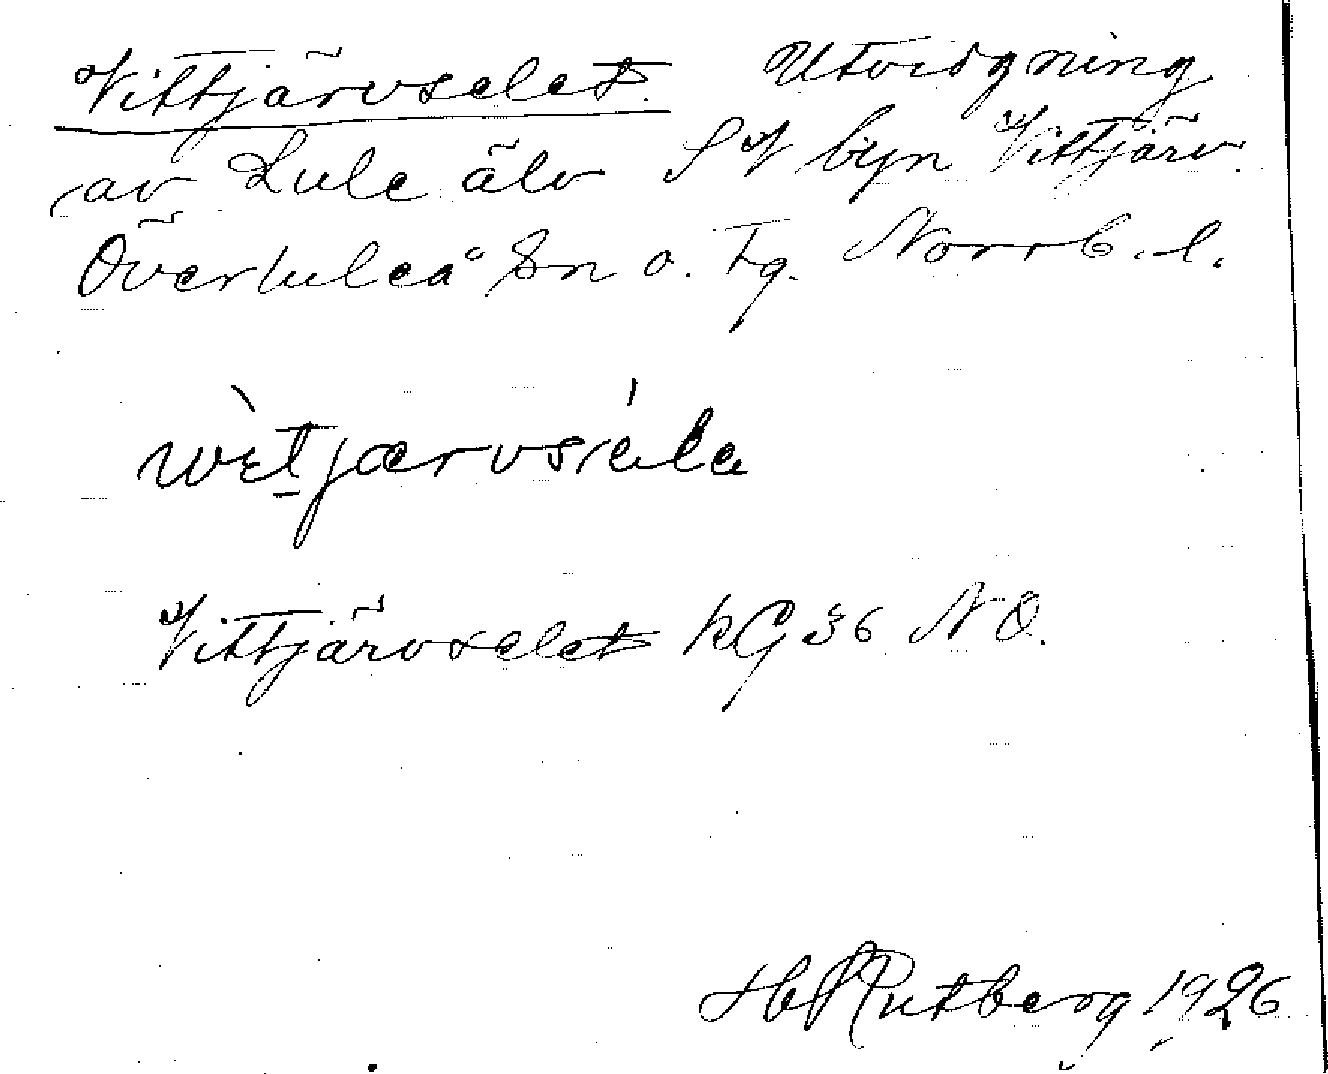 Vittjärvselet. Utvidgning
av Lule älv SV byn Vittjärv.
Överluleå Sn o. Tg. Norrb. l.
wètjærvsiéla
Vittjärvselet kG 36 NO.
H Rutberg 1926